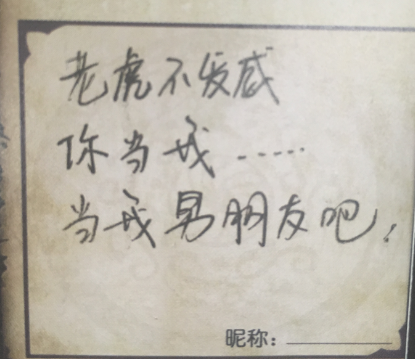 老虎不发威
你当我……
当我男朋友吧!
昵称: